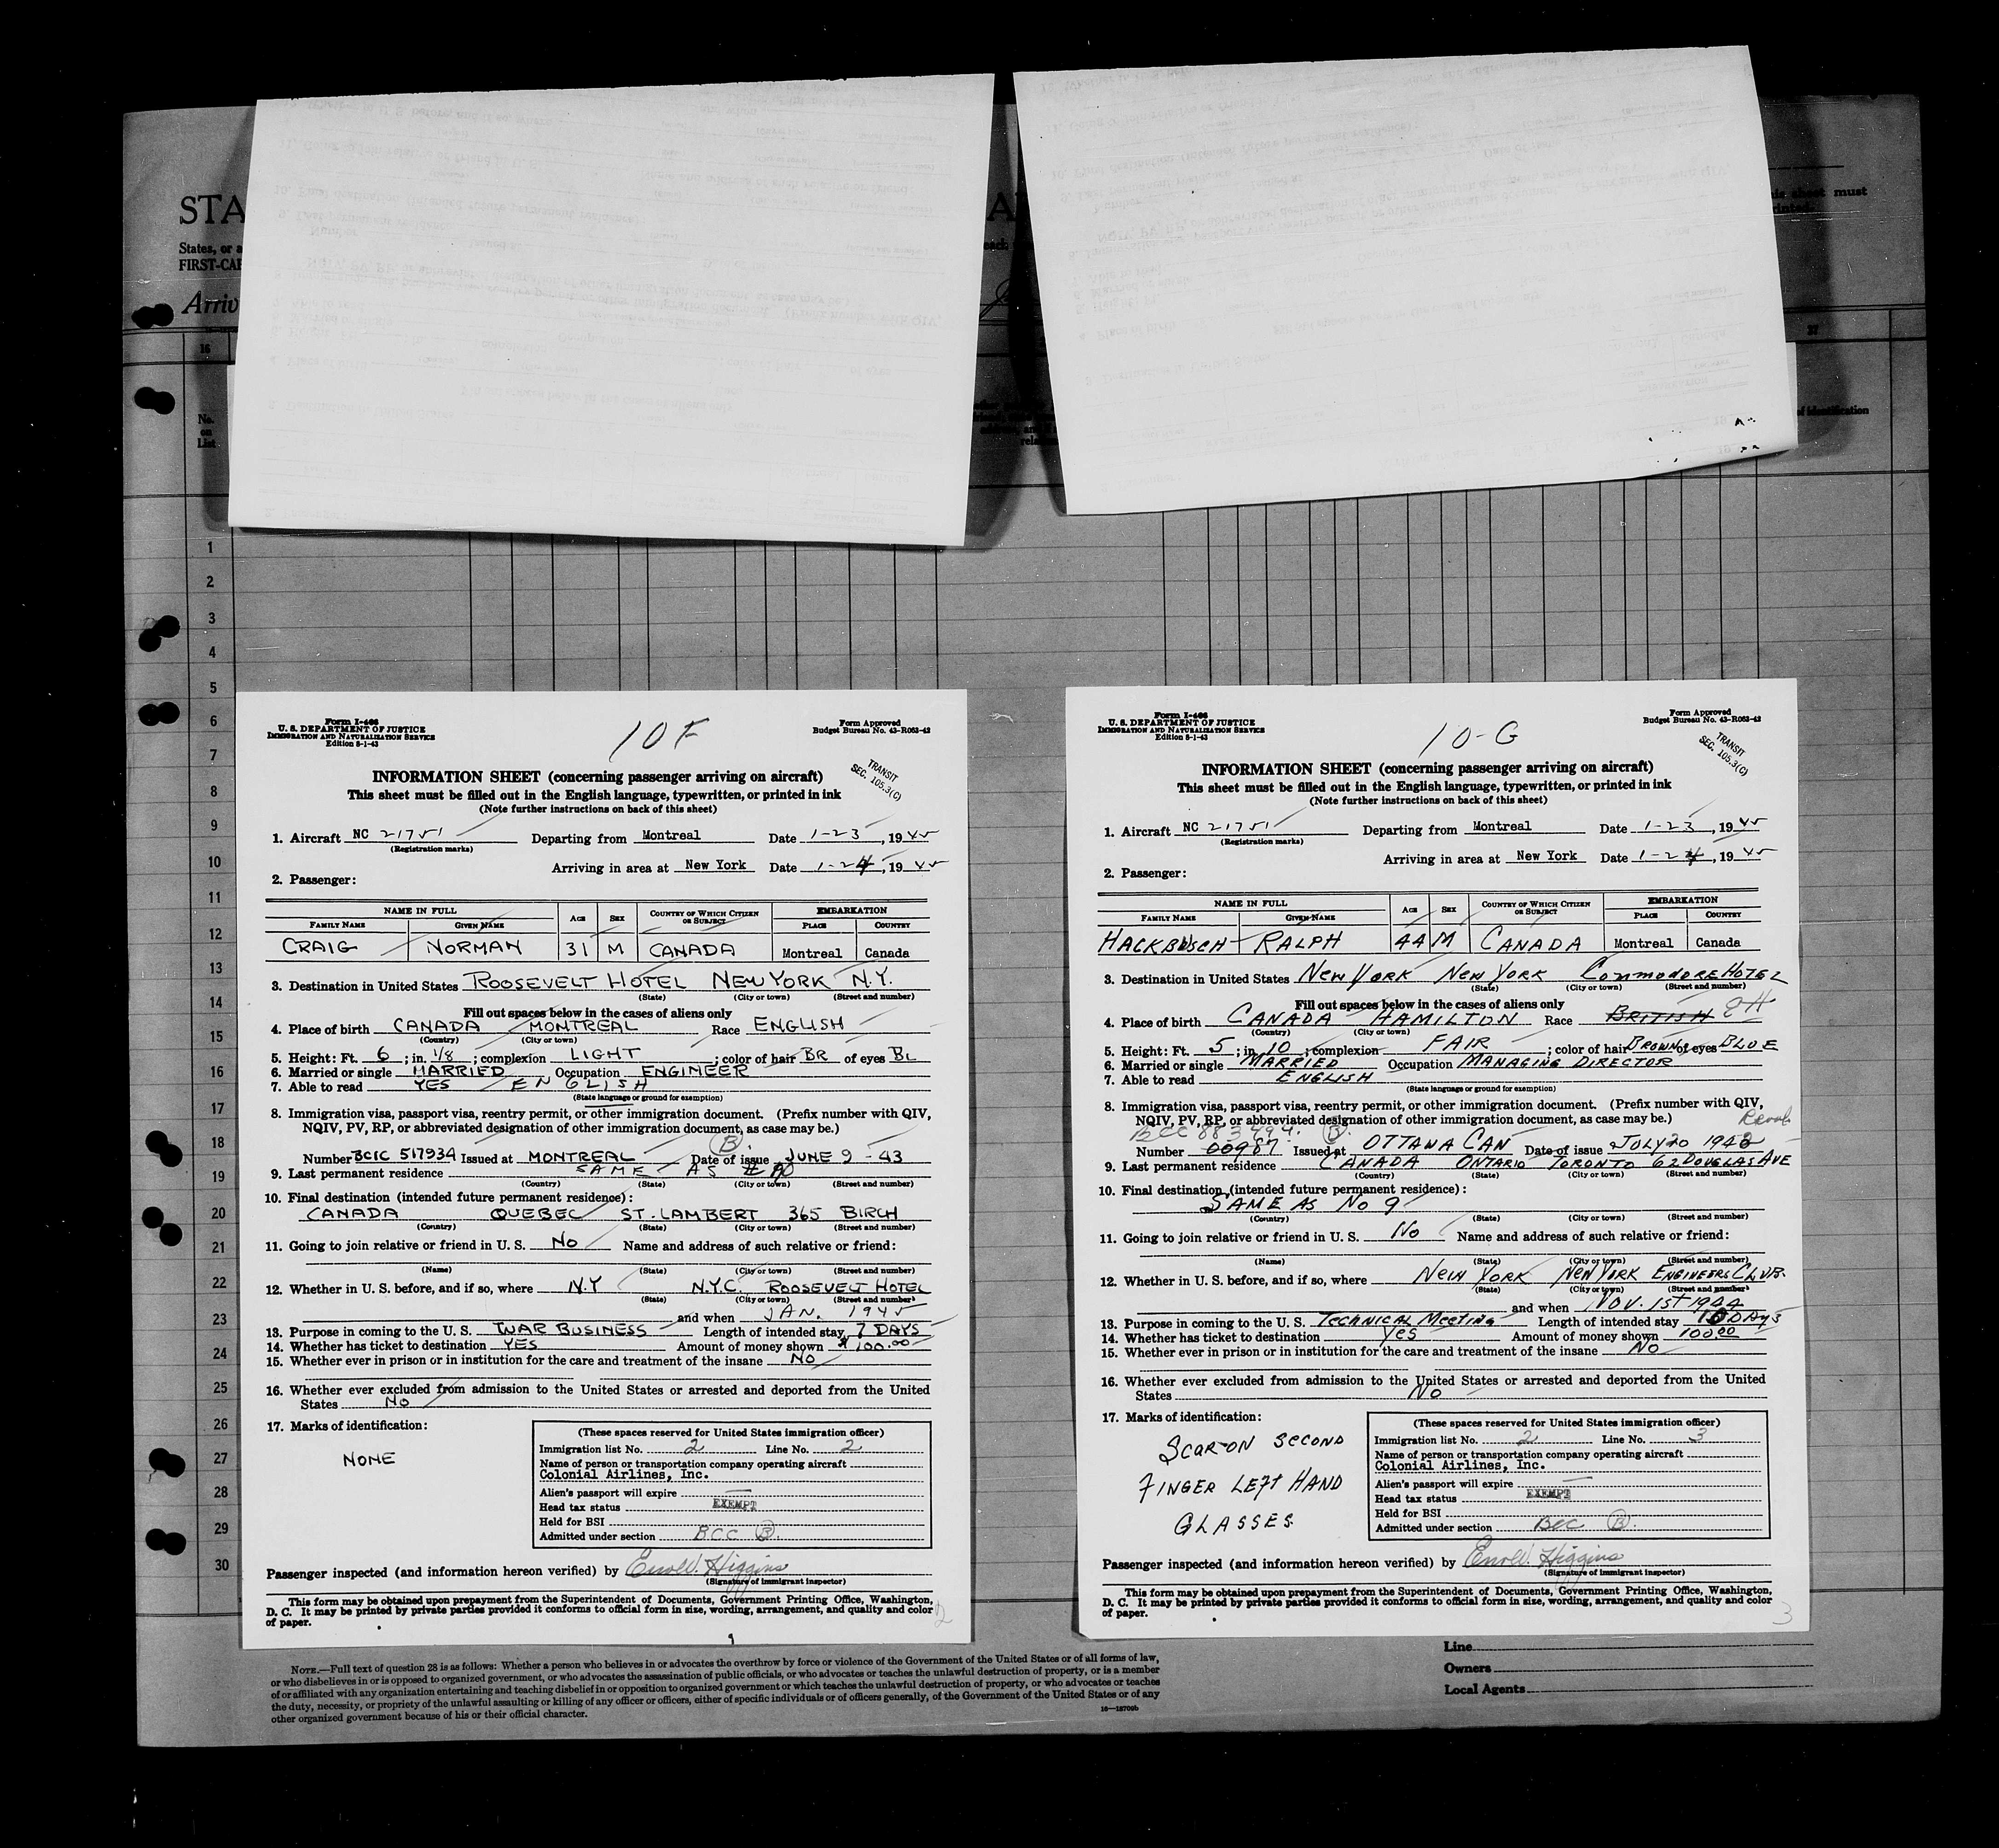 STA
States, or a
FIRST-CAB
Arriv
16
No.
on
List
is sheet must
rinted.
37
of identification
1
2
3
4
5
6
7
8
9
10
11
12
13
14
15
16
17
18
19
20
21
22
23
24
25
26
27
28
29
30
Form I-466
U. S. DEPARTMENT OF JUSTICE
IMMIGRATION AND NATURALIZATION SERVICE
Edition 8-1-43
10 F
Form Approved
Budget Bureau No. 43-R063-42
TRANSIT
SEC. 105.3(C)
INFORMATION SHEET (concerning passenger arriving on aircraft)
This sheet must be filled out in the English language, typewritten, or printed in ink
(Note further instructions on back of this sheet)
1. Aircraft NC 21751 Departing from Montreal Date 1-23, 1945
(Registration marks)
Arriving in area at New York Date 1-24, 1945
2. Passenger:
NAME IN FULL AGE SEX COUNTRY OF WHICH CITIZEN OR SUBJECT EMBARKATION
FAMILY NAME GIVEN NAME PLACE COUNTRY
CRAIG NORMAN 31 M CANADA Montreal Canada
3. Destination in United States ROOSEVELT HOTEL NEW YORK N.Y.
(State) (City or town) (Street and number)
Fill out spaces below in the cases of aliens only
4. Place of birth CANADA MONTREAL Race ENGLISH
(Country) (City or town)
5. Height: Ft. 6; in. 1/8; complexion LIGHT; color of hair BR of eyes BL
6. Married or single MARRIED Occupation ENGINEER
7. Able to read YES ENGLISH
(State language or ground for exemption)
8. Immigration visa, passport visa, reentry permit, or other immigration document. (Prefix number with QIV,
NQIV, PV, RP, or abbreviated designation of other immigration document, as case may be.)
(B).
Number BCIC 517934 Issued at MONTREAL Date of issue JUNE 9 - 43
9. Last permanent residence SAME AS # 10
(Country) (State) (City or town) (Street and number)
10. Final destination (intended future permanent residence):
CANADA QUEBEC ST. LAMBERT 365 BIRCH
(Country) (State) (City or town) (Street and number)
11. Going to join relative or friend in U. S. NO Name and address of such relative or friend:
(Name) (State) (City or town) (Street and number)
12. Whether in U. S. before, and if so, where N.Y N.Y.C. ROOSEVELT HOTEL
(State) (City or town) (Street and number)
and when JAN. 1945
13. Purpose in coming to the U. S. WAR BUSINESS Length of intended stay 7 DAYS
14. Whether has ticket to destination YES Amount of money shown $100.00
15. Whether ever in prison or in institution for the care and treatment of the insane NO
16. Whether ever excluded from admission to the United States or arrested and deported from the United
States NO
17. Marks of identification:
NONE
(These spaces reserved for United States immigration officer)
Immigration list No. 2 Line No. 2
Name of person or transportation company operating aircraft
Colonial Airlines, Inc.
Alien's passport will expire —
Head tax status EXEMPT
Held for BSI
Admitted under section BCC (B).
Passenger inspected (and information hereon verified) by Errol V. Higgins
(Signature of immigrant inspector)
This form may be obtained upon prepayment from the Superintendent of Documents, Government Printing Office, Washington,
D. C. It may be printed by private parties provided it conforms to official form in size, wording, arrangement, and quality and color
of paper.
2
Form I-466
U. S. DEPARTMENT OF JUSTICE
IMMIGRATION AND NATURALIZATION SERVICE
Edition 8-1-43
10-G
Form Approved
Budget Bureau No. 43-R063-42
TRANSIT
SEC. 105.3(C)
INFORMATION SHEET (concerning passenger arriving on aircraft)
This sheet must be filled out in the English language, typewritten, or printed in ink
(Note further instructions on back of this sheet)
1. Aircraft NC 21751 Departing from Montreal Date 1-23, 1945
(Registration marks)
Arriving in area at New York Date 1-24, 1945
2. Passenger:
NAME IN FULL AGE SEX COUNTRY OF WHICH CITIZEN OR SUBJECT EMBARKATION
FAMILY NAME GIVEN NAME PLACE COUNTRY
HACKBUSCH RALPH 44 M CANADA Montreal Canada
3. Destination in United States NEW YORK NEW YORK COMMODORE HOTEL
(State) (City or town) (Street and number)
Fill out spaces below in the cases of aliens only
4. Place of birth CANADA HAMILTON Race BRITISH
(Country) (City or town)
5. Height: Ft. 5; in. 10; complexion FAIR; color of hair BROWN of eyes BLUE
6. Married or single MARRIED Occupation MANAGING DIRECTOR
7. Able to read ENGLISH
(State language or ground for exemption)
8. Immigration visa, passport visa, reentry permit, or other immigration document. (Prefix number with QIV,
NQIV, PV, RP, or abbreviated designation of other immigration document, as case may be.)
BCC 883494. (B).
Number 00987 Issued at OTTAWA CAN Date of issue JULY 20 1943
9. Last permanent residence CANADA ONTARIO TORONTO 62 DOUGLAS AVE
(Country) (State) (City or town) (Street and number)
10. Final destination (intended future permanent residence):
SAME AS NO 9
(Country) (State) (City or town) (Street and number)
11. Going to join relative or friend in U. S. NO Name and address of such relative or friend:
(Name) (State) (City or town) (Street and number)
12. Whether in U. S. before, and if so, where NEW YORK NEW YORK ENGINEERS CLUB.
(State) (City or town) (Street and number)
and when NOV. 1ST 1944
13. Purpose in coming to the U. S. TECHNICAL MEETING Length of intended stay 10 DAYS
14. Whether has ticket to destination YES Amount of money shown 100 00
15. Whether ever in prison or in institution for the care and treatment of the insane NO
16. Whether ever excluded from admission to the United States or arrested and deported from the United
States NO
17. Marks of identification:
SCAR ON SECOND
FINGER LEFT HAND
GLASSES
(These spaces reserved for United States immigration officer)
Immigration list No. 2 Line No. 3
Name of person or transportation company operating aircraft
Colonial Airlines, Inc.
Alien's passport will expire —
Head tax status EXEMPT
Held for BSI
Admitted under section BCC (B).
Passenger inspected (and information hereon verified) by Errol V. Higgins
(Signature of immigrant inspector)
This form may be obtained upon prepayment from the Superintendent of Documents, Government Printing Office, Washington,
D. C. It may be printed by private parties provided it conforms to official form in size, wording, arrangement, and quality and color
of paper.
3
NOTE.—Full text of question 28 is as follows: Whether a person who believes in or advocates the overthrow by force or violence of the Government of the United States or of all forms of law,
or who disbelieves in or is opposed to organized government, or who advocates the assassination of public officials, or who advocates or teaches the unlawful destruction of property, or is a member
of or affiliated with any organization entertaining and teaching disbelief in or opposition to organized government or which teaches the unlawful destruction of property, or who advocates or teaches
the duty, necessity, or propriety of the unlawful assaulting or killing of any officer or officers, either of specific individuals or of officers generally, of the Government of the United States or of any
other organized government because of his or their official character.
16—18709b
Line
Owners
Local Agents